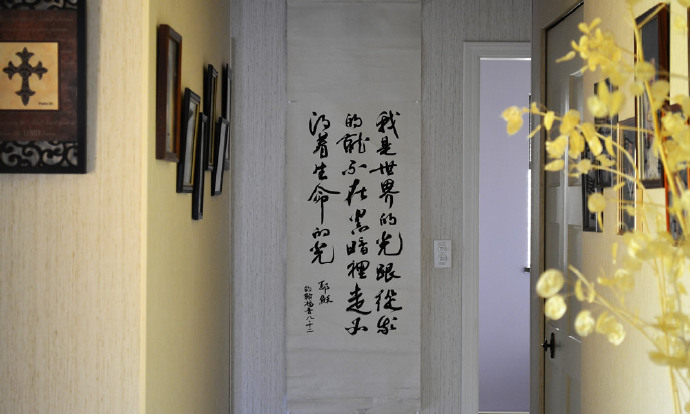 我是世界的光跟從我
的就不在黑暗裡走必
得着生命的光
耶穌
約翰福音八十二